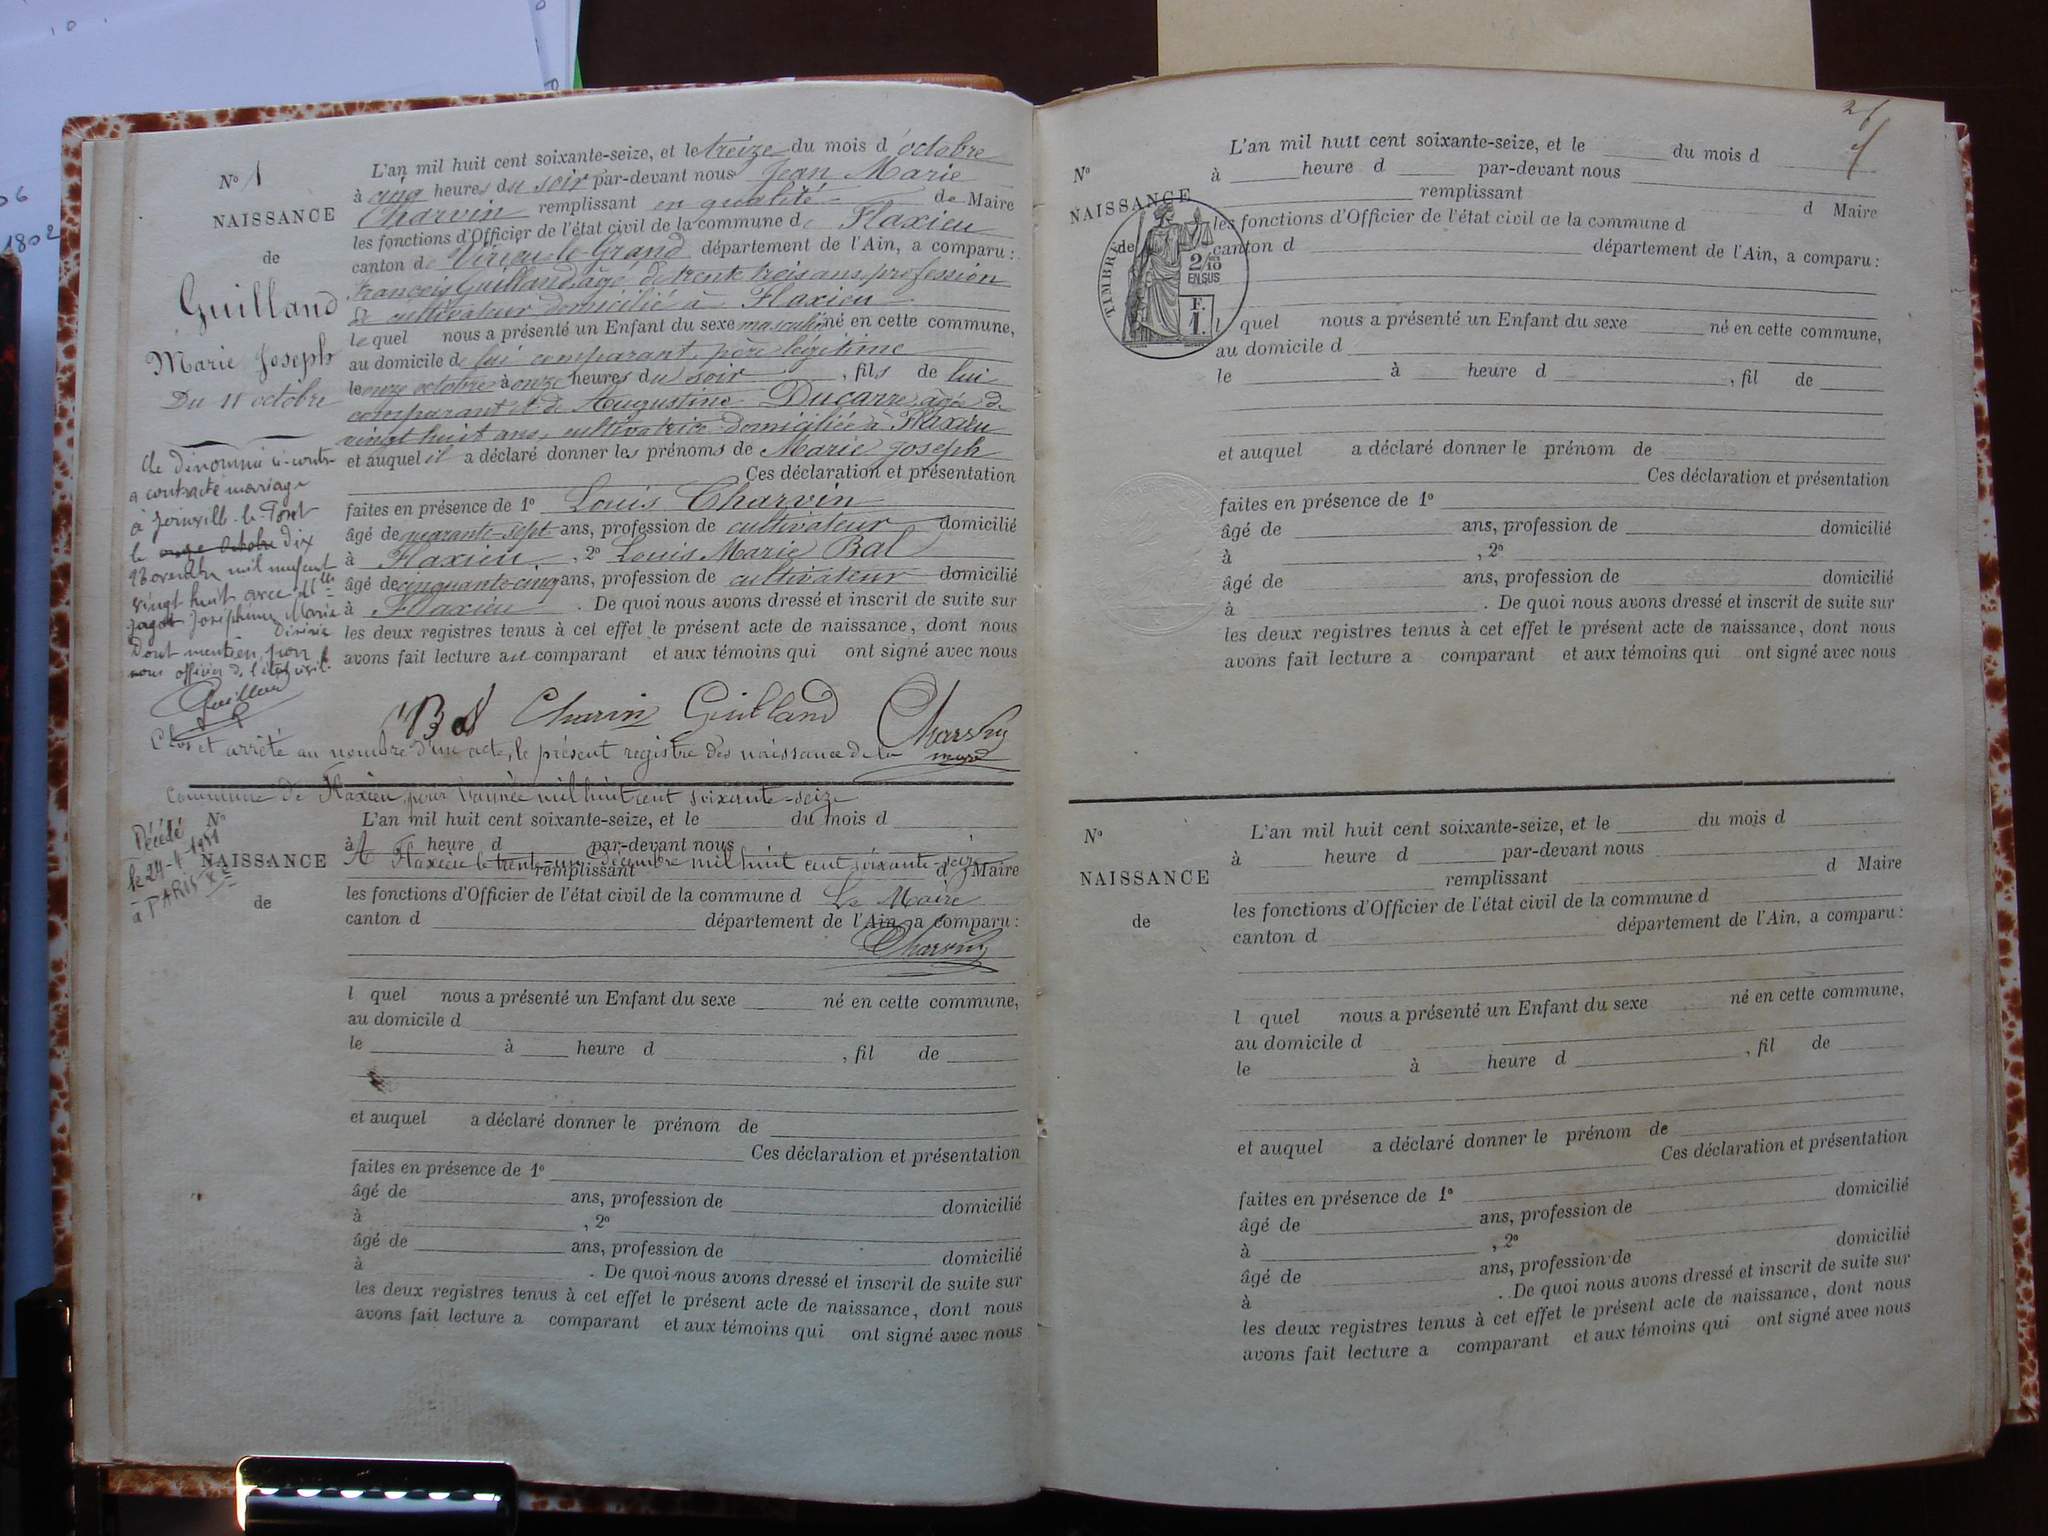 N° 1
NAISSANCE
de
Guilland
Marie Joseph
Du 11 octobre
L'an mil huit cent soixante-seize, et le treize du mois d'octobre
à cinq heures du soir par-devant nous Jean Marie
Charvin remplissant en qualité de Maire
les fonctions d'Officier de l'état civil de la commune de Flaxieu
canton de Virieu-le-Grand département de l'Ain, a comparu :
François Guilland, âgé de trente trois ans, profession
de cultivateur domicilié à Flaxieu
lequel nous a présenté un Enfant du sexe masculin né en cette commune,
au domicile de lui comparant, père légitime
le onze octobre à onze heures du soir, fils de lui
comparant et de Augustine Ducarre, âgée de
vingt huit ans, cultivatrice domiciliée à Flaxieu
et auquel il a déclaré donner les prénoms de Marie Joseph
Ces déclaration et présentation
faites en présence de 1° Louis Charvin
âgé de quarante-sept ans, profession de cultivateur domicilié
à Flaxieu, 2° Louis Marie Bal
âgé de cinquante-cinq ans, profession de cultivateur domicilié
à Flaxieu. De quoi nous avons dressé et inscrit de suite sur
les deux registres tenus à cet effet le présent acte de naissance, dont nous
avons fait lecture au comparant et aux témoins qui ont signé avec nous
Le dénommé ci-contre
a contracté mariage
à Joinville-le-Pont
le onze Octobre dix
Novembre mil neuf cent
vingt huit avec Mlle
Jagot Joséphine Marie
Désirée
Dont mention par
nous officier de l'état civil.
Guilland
Bal Charvin Guilland Charvin
maire
Clos et arrêté au nombre d'un acte, le présent registre des naissances de la
commune de Flaxieu, pour l'année mil huit cent soixante-seize
Décédé
le 24-4-1951
à PARIS Xe
N°
NAISSANCE
de
L'an mil huit cent soixante-seize, et le du mois d
à heure d par-devant nous
A Flaxieu le trente-un Décembre mil huit cent soixante-seize
remplissant d Maire
les fonctions d'Officier de l'état civil de la commune d Le Maire
canton d département de l'Ain, a comparu :
Charvin
l quel nous a présenté un Enfant du sexe né en cette commune,
au domicile d
le à heure d , fil de
et auquel a déclaré donner le prénom de
Ces déclaration et présentation
faites en présence de 1°
âgé de ans, profession de domicilié
à , 2°
âgé de ans, profession de domicilié
à . De quoi nous avons dressé et inscrit de suite sur
les deux registres tenus à cet effet le présent acte de naissance, dont nous
avons fait lecture a comparant et aux témoins qui ont signé avec nous
N°
NAISSANCE
de
TIMBRE
2/10
EN SUS
F.
1.
L'an mil huit cent soixante-seize, et le du mois d
à heure d par-devant nous
remplissant d Maire
les fonctions d'Officier de l'état civil de la commune d
canton d département de l'Ain, a comparu :
l quel nous a présenté un Enfant du sexe né en cette commune,
au domicile d
le à heure d , fil de
et auquel a déclaré donner le prénom de
Ces déclaration et présentation
faites en présence de 1°
âgé de ans, profession de domicilié
à , 2°
âgé de ans, profession de domicilié
à . De quoi nous avons dressé et inscrit de suite sur
les deux registres tenus à cet effet le présent acte de naissance, dont nous
avons fait lecture a comparant et aux témoins qui ont signé avec nous
N°
NAISSANCE
de
L'an mil huit cent soixante-seize, et le du mois d
à heure d par-devant nous
remplissant d Maire
les fonctions d'Officier de l'état civil de la commune d
canton d département de l'Ain, a comparu :
l quel nous a présenté un Enfant du sexe né en cette commune,
au domicile d
le à heure d , fil de
et auquel a déclaré donner le prénom de
Ces déclaration et présentation
faites en présence de 1°
âgé de ans, profession de domicilié
à , 2°
âgé de ans, profession de domicilié
à . De quoi nous avons dressé et inscrit de suite sur
les deux registres tenus à cet effet le présent acte de naissance, dont nous
avons fait lecture a comparant et aux témoins qui ont signé avec nous
1802